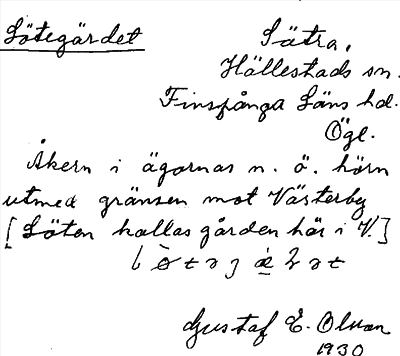 Lötegärdet
Sätra,
Hällestads sn.
Finspånga Läns hd.
Ögl.
Åkern i ägornas n. ö. hörn
utmed gränsen mot Västerby
[Löten kallas gården här i V.]
Gustaf E.
1930